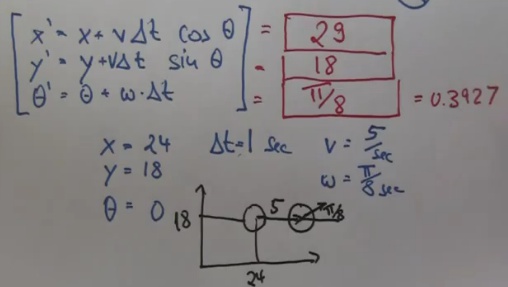 x' = x + v Δt cos θ = 29
y' = y + vΔt sin θ = 18
θ' = θ + ω·Δt = π/8 = 0.3927
x = 24 Δt=1 sec v = 5/sec
y = 18 ω = π/8 sec
θ = 0
18 5 π/8
24